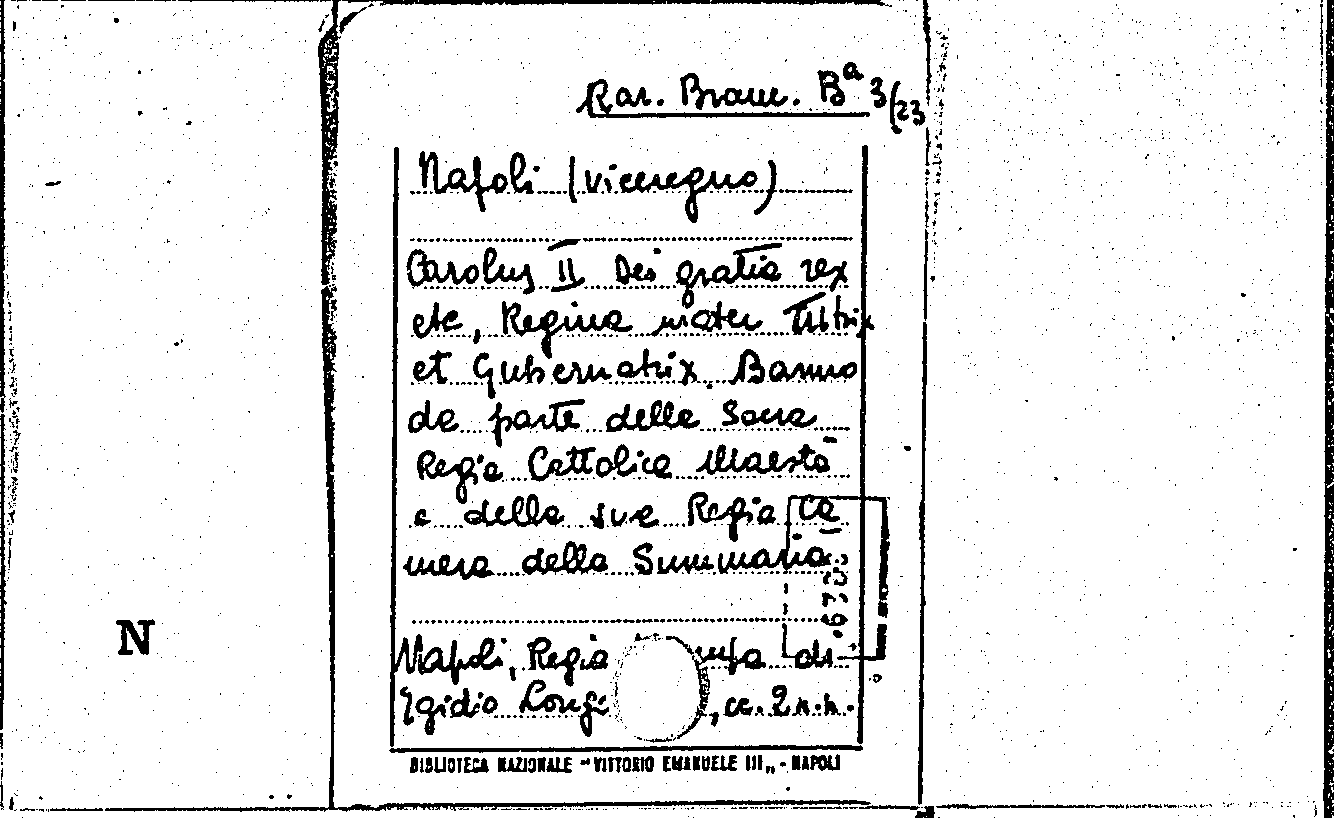 Rar. Branc. Bª 3/23
Napoli (viceregno)
Carolus II Dei gratia rex
etc, Regina mater Tutrix
et Gubernatrix. Banno
da parte della Sacra
Regia Cattolica Maestà
e della sua Regia Ca
mera della Summaria
N
Napoli, Regia di
Egidio , cc. 2 n.n.
BIBLIOTECA NAZIONALE "VITTORIO EMANUELE III„ - NAPOLI